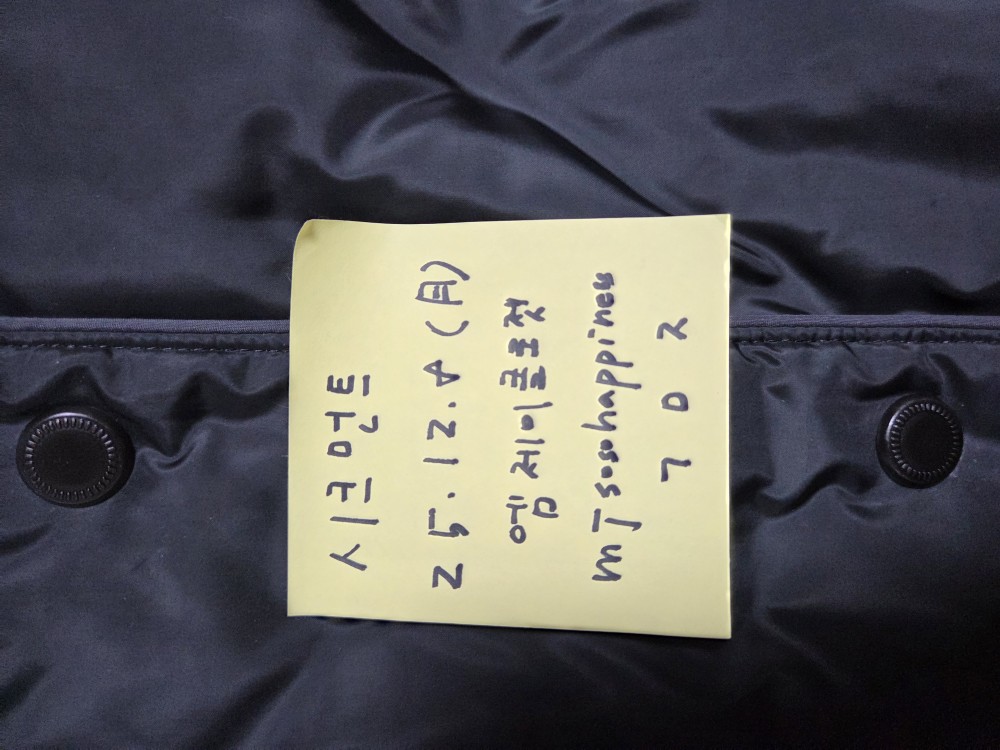 시크먼트
25.12.8(月)
엠제이클로젯
mjsosohappiness
ㄱㅁㅈ